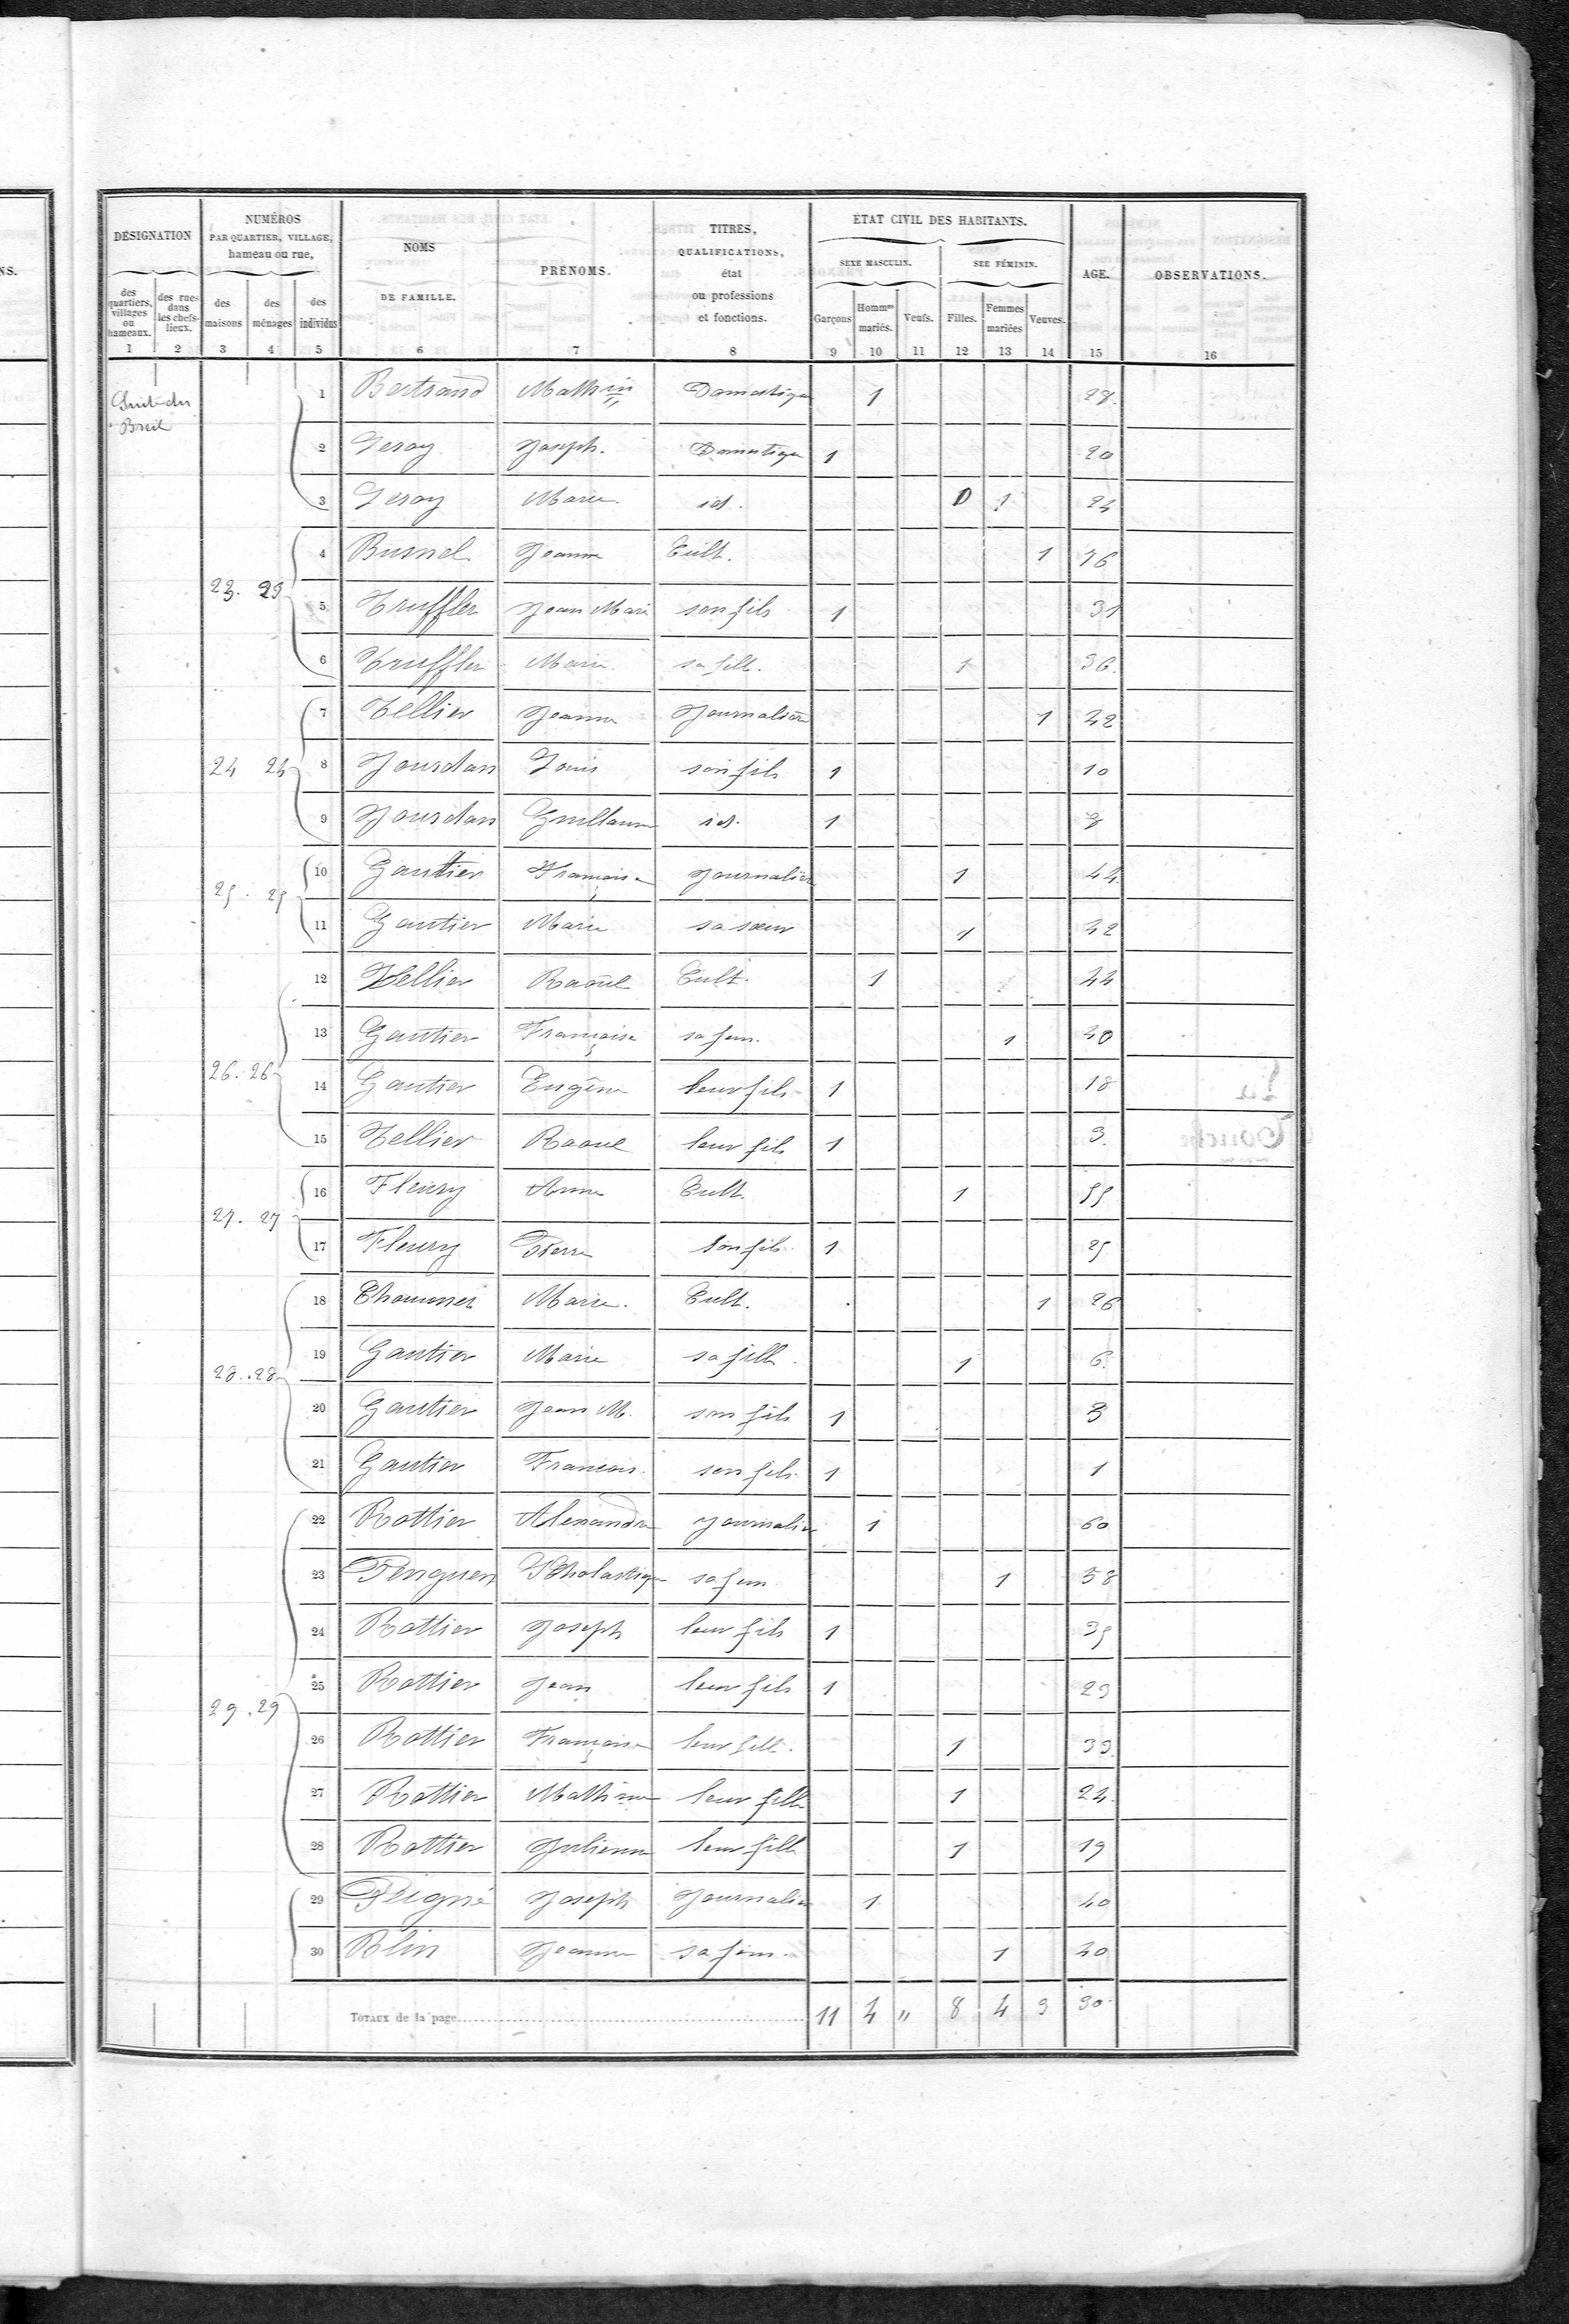 DÉSIGNATION
des quartiers, villages ou hameaux.
des rues dans les chefs-lieux.
NUMÉROS
PAR QUARTIER, VILLAGE,
hameau ou rue,
des maisons
des ménages
des individus
NOMS
DE FAMILLE.
PRÉNOMS.
TITRES,
QUALIFICATIONS,
état
ou professions
et fonctions.
ÉTAT CIVIL DES HABITANTS.
SEXE MASCULIN.
SEE FÉMININ.
Garçons
Hommes mariés.
Veufs.
Filles.
Femmes mariées
Veuves.
AGE.
OBSERVATIONS.
1 2 3 4 5 6 7 8 9 10 11 12 13 14 15 16
Suite du
Breil
1 Bertrand Mathin Domestique 1 28
2 Leray Joseph. Domestique 1 20
3 Leray Marie id. 0 1 24
23. 23
4 Busnel Jeanne Cult. 1 76
5 Truffler Jean Marie son fils 1 31
6 Truffler Marie sa fille. 1 36
24 24
7 Tellier Jeanne Journalière 1 42
8 Jourdan Louis son fils 1 10
9 Jourdan Guillaume id. 1 8
25. 25
10 Gautier Françoise Journalière 1 44
11 Gautier Marie sa sœur 1 42
26. 26
12 Tellier Raoul Cult. 1 44
13 Gautier Françoise sa fem. 1 40
14 Gautier Eugène leur fils 1 18
15 Tellier Raoul leur fils 1 3.
27. 27
16 Fleury Anne Cult. 1 55
17 Fleury Pierre son fils 1 25
28. 28
18 Marie. Cult. 1 26
19 Gautier Marie sa fille. 1 6.
20 Gautier Jean M. son fils 1 3
21 Gautier Francois son fils 1 1
29. 29
22 Rottier Alexandre journalier 1 60
23 Scholastique sa fem 1 58
24 Rottier Joseph leur fils 1 35
25 Rottier Jean leur fils 1 29
26 Rottier Françoise leur fille. 1 33
27 Rottier Mathurine leur fille 1 24
28 Rottier Julienne leur fille 1 19
29 Peigné Joseph Journalier 1 40
30 Blin Jeanne sa fem. 1 40
TOTAUX de la page 11 4 " 8 4 3 30